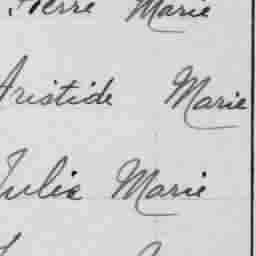 Pierre Marie
Aristide Marie
Julie Marie